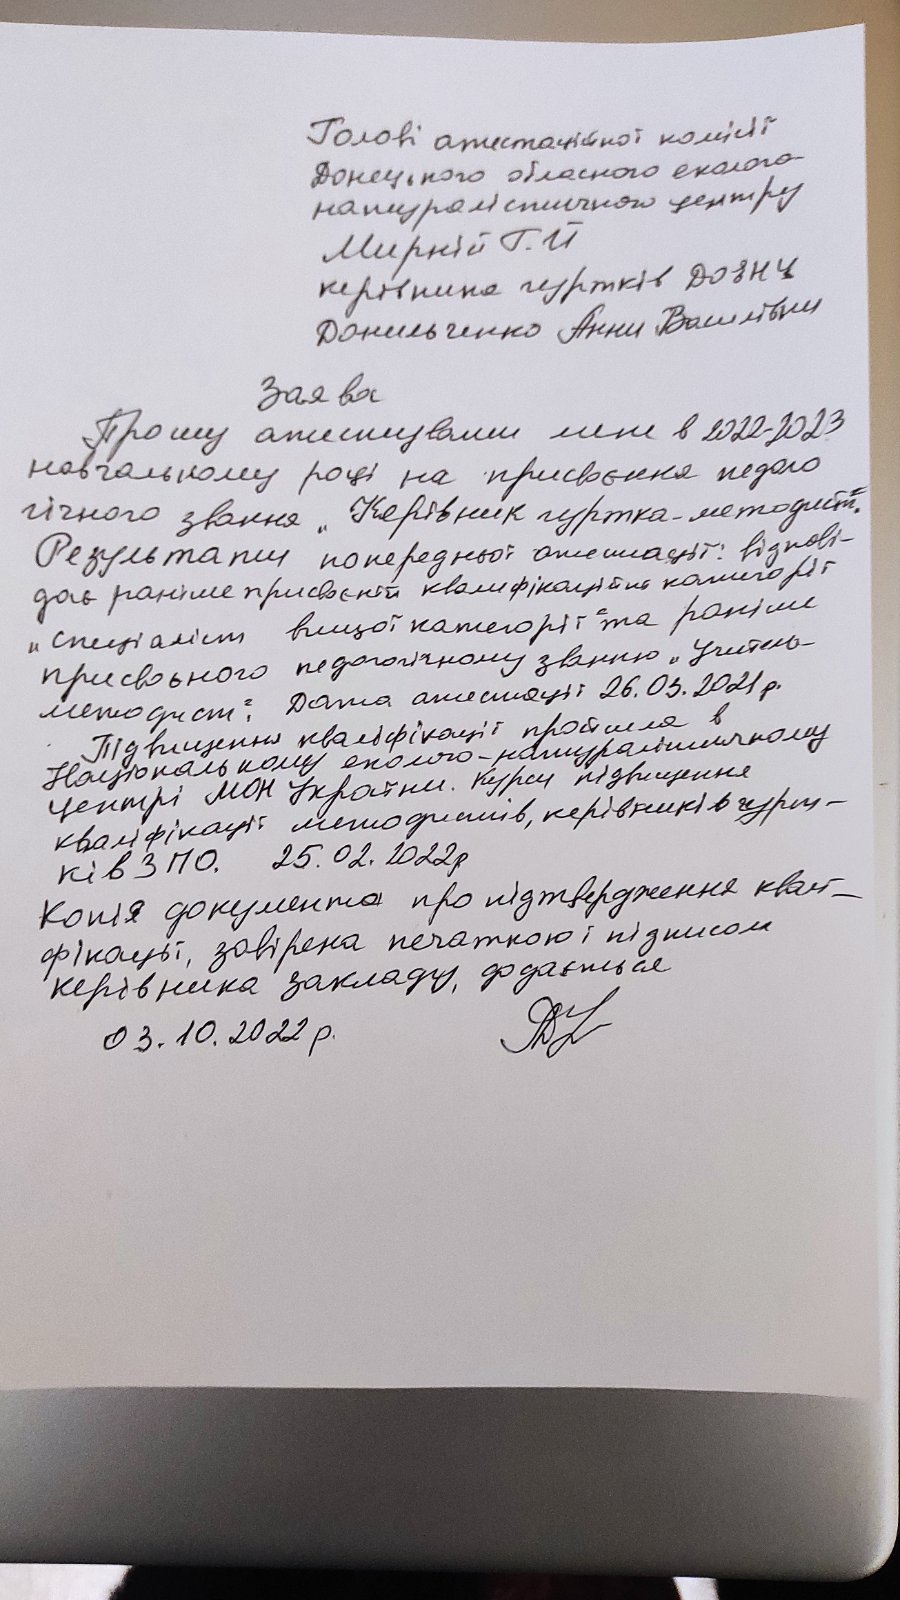 Голові атестаційної комісії
Донецького обласного еколого-
натуралістичного центру
Мирній Г.Й
керівника гуртків ДОЕНЦ
Данильченко Анни Василівни
Заява
Прошу атестувати мене в 2022-2023
навчальному році на присвоєння педаго
гічного звання „Керівник гуртка-методист".
Результати попередньої атестації: відпові-
дає раніше присвоєній кваліфікаційній категорії
„спеціаліст вищої категорії" та раніше
присвоєного педагогічному званню „Учитель-
методист". Дата атестації 26.03.2021р.
Підвищення кваліфікації пройшла в
Національному еколого-натуралістичному
центрі МОН України. Курси підвищення
кваліфікації методистів, керівників гурт-
ків ЗПО. 25.02.2022р
Копія документа про підтвердження квалі-
фікації, завірена печаткою і підписом
керівника закладу, додається
03.10.2022р.